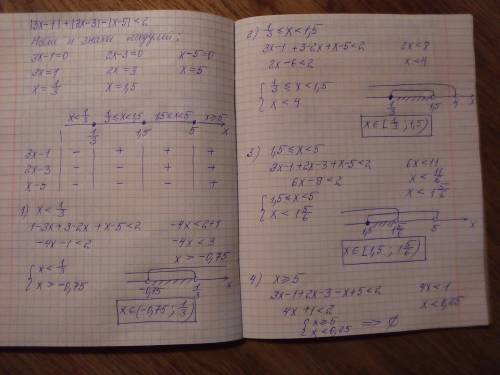 |3x-1|+|2x-3|-|x-5|<2
Нули и знаки модулей:
3x-1=0 2x-3=0 x-5=0
3x=1 2x=3 x=5
x=1/3 x=1,5
x<1/3 1/3≤x<1,5 1,5≤x<5 x≥5
1/3 1,5 5 x
3x-1 - + + +
2x-3 - - + +
x-5 - - - +
1) x<1/3
1-3x+3-2x+x-5<2 -4x<2+1
-4x-1<2 -4x<3
x>-0,75
{ x<1/3
x>-0,75
-0,75 1/3 x
x∈(-0,75; 1/3)
2) 1/3≤x<1,5
3x-1+3-2x+x-5<2 2x<8
2x-6<2 x<4
{ 1/3≤x<1,5
x<4
1/3 1,5 4 x
x∈[1/3; 1,5)
3) 1,5≤x<5
3x-1+2x-3+x-5<2 6x<11
6x-9<2 x<11/6
x<1 5/6
{ 1,5≤x<5
x<1 5/6
1,5 1 5/6 5 x
x∈[1,5; 1 5/6)
4) x≥5
3x-1+2x-3-x+5<2 4x<1
4x+1<2 x<0,25
{ x≥5
x<0,25 => ∅